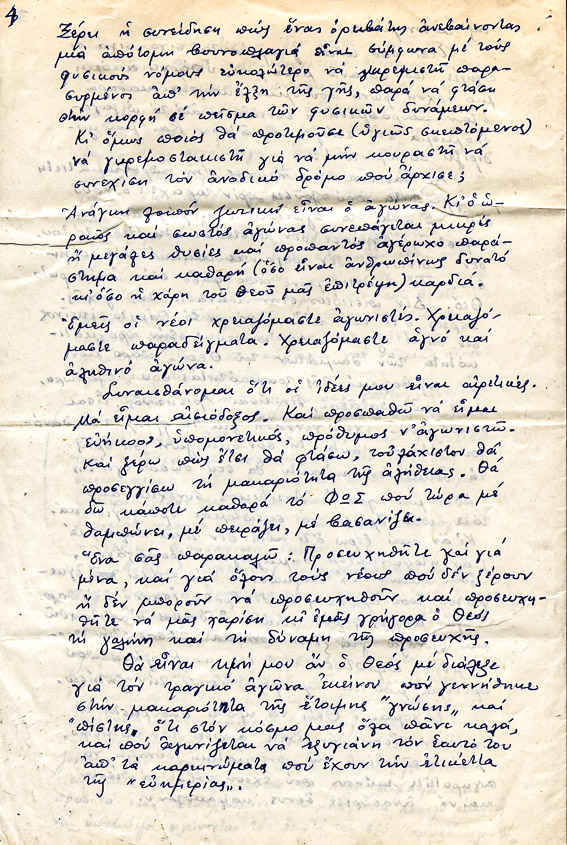 4
Ξέρει ἡ συνείδηση πὼς ἕνας ὀρειβάτης ἀνεβαίνοντας
μιὰ ἀπότομη βουνοπλαγιὰ εἶναι σύμφωνα μὲ τοὺς
φυσικοὺς νόμους εὐκολώτερο νὰ γκρεμιστῆ παρα-
συρμένος ἀπ' τὴν ἕλξη τῆς γῆς, παρὰ νὰ φτάση
στὴν κορφὴ σὲ πεῖσμα τῶν φυσικῶν δυνάμεων.
Κι' ὅμως ποιὸς θὰ προτιμοῦσε (ὑγιῶς σκεπτόμενος)
νὰ γκρεμοτσακιστῆ γιὰ νὰ μὴν κουραστῆ νὰ
συνεχίση τὸν ἀνοδικὸ δρόμο ποὺ ἄρχισε;
Ἀνάγκη λοιπὸν ζωτικὴ εἶναι ὁ ἀγώνας. Κι' ὁ ὡ-
ραῖος καὶ σωστὸς ἀγώνας συνεπάγεται μικρὲς
ἢ μεγάλες θυσίες καὶ προπαντὸς ἀγέρωχο παρά-
στημα καὶ καθαρὴ (ὅσο εἶναι ἀνθρωπίνως δυνατὸ
κι' ὅσο ἡ χάρη τοῦ Θεοῦ μᾶς ἐπιτρέψη) καρδιά.
Ἐμεῖς οἱ νέοι χρειαζόμαστε ἀγωνιστές. Χρειαζό-
μαστε παραδείγματα. Χρειαζόμαστε ἁγνὸ καὶ
ἀληθινὸ ἀγώνα.
Συναισθάνομαι ὅτι οἱ ἰδέες μου εἶναι αἱρετικές.
Μὰ εἶμαι αἰσιόδοξος. Καὶ προσπαθῶ νὰ εἶμαι
εὐήκοος, ὑπομονετικός, πρόθυμος ν' ἀγωνιστῶ.
Καὶ ξέρω πὼς ἔτσι θὰ φτάσω, τοὐλάχιστον θὰ
προσεγγίσω τὴ μακαριότητα τῆς ἀλήθειας. Θὰ
δῶ κάποτε καθαρὰ τὸ ΦΩΣ ποὺ τώρα μὲ
θαμπώνει, μὲ πειράζει, μὲ βασανίζει.
Ἕνα σᾶς παρακαλῶ: Προσευχηθῆτε καὶ γιὰ
μένα, καὶ γιὰ ὅλους τοὺς νέους ποὺ δὲν ξέρουν
ἢ δὲν μποροῦν νὰ προσευχηθοῦν καὶ προσευχη-
θῆτε νὰ μᾶς χαρίση κι' ἐμᾶς γρήγορα ὁ Θεὸς
τὴ γαλήνη καὶ τὴ δύναμη τῆς προσευχῆς.
Θὰ εἶναι τιμή μου ἂν ὁ Θεὸς μὲ διάλεξε
γιὰ τὸν τραγικὸ ἀγώνα ἐκείνου ποὺ γεννήθηκε
στὴν μακαριότητα τῆς ἕτοιμης "γνώσης" καὶ
"πίστης" ὅτι στὸν κόσμο μας ὅλα πᾶνε καλά,
καὶ ποὺ ἀγωνίζεται νὰ ἐξυγιάνη τὸν ἑαυτό του
ἀπ' τὰ καρκινώματα ποὺ ἔχουν τὴν ἐτικέτα
τῆς "εὐημερίας".